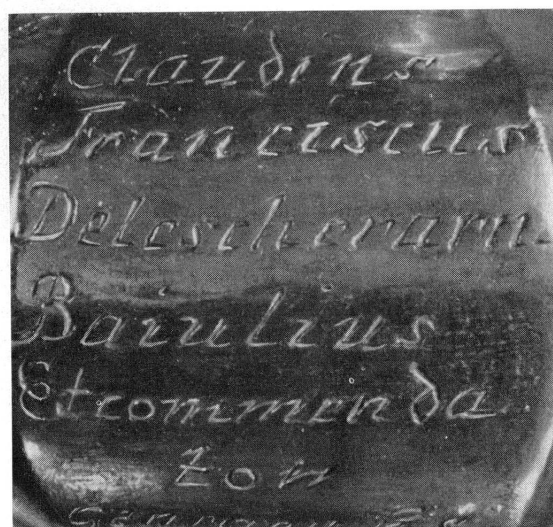 Claudius
Franciscus
Delescherarn
Baiulius
Etcommenda
tor